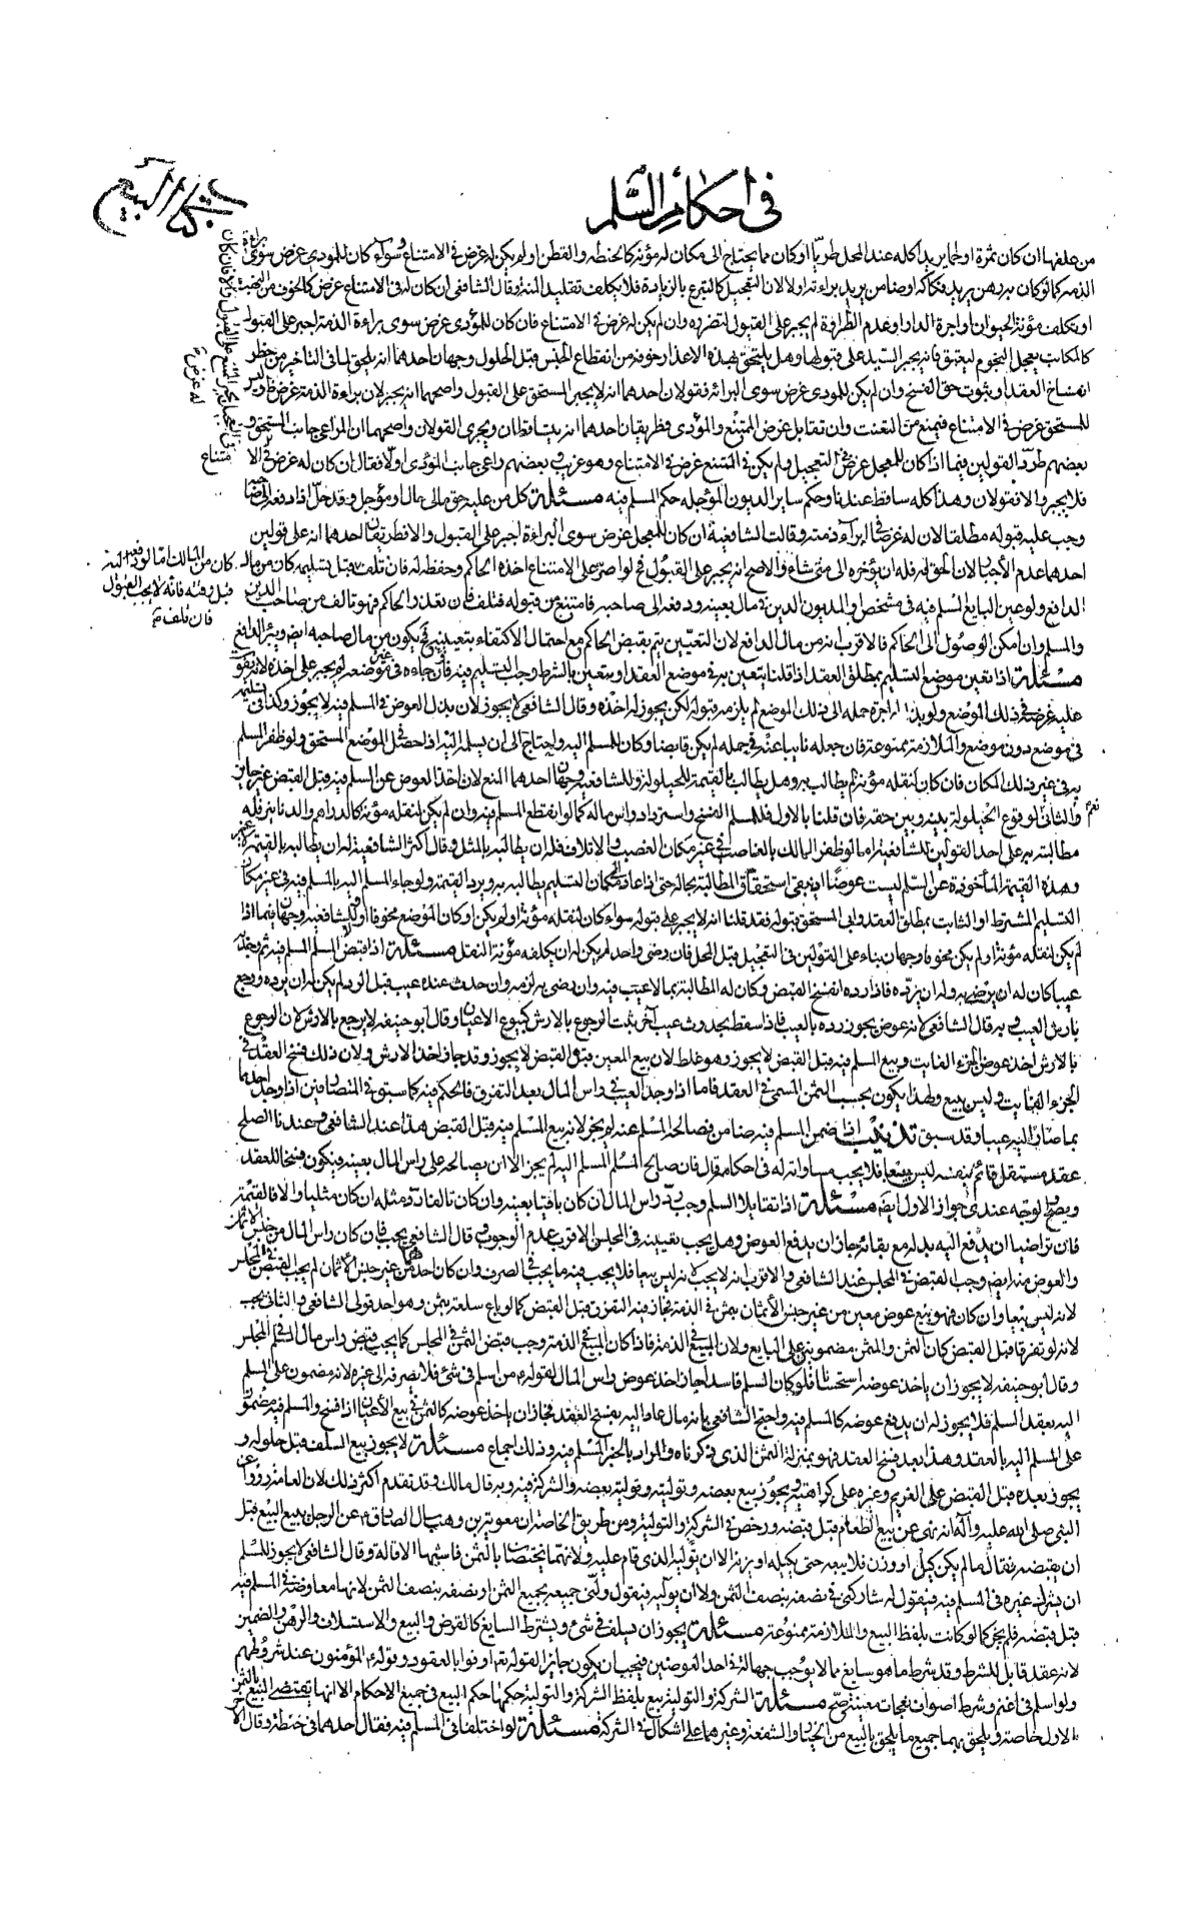 كتاب البيع
في احكام السلم
من علفها ان كان ثمرة او لحما يريد اكله عند المحل طريا او كان مما يحتاج الى مكان له مؤنة كالحنطة والقطن او لم يكن له غرض في الامتناع وسواء كان للمودي غرض سوى براءة
الذمة كما لو كان به رهن يريد فكاكه او ضامن يريد براءته او لا لان التعجيل كالتبرع بالزيادة فلا يكلف تقليد المنة وقال الشافعي ان كان له في الامتناع غرض كالخوف من النهب
او يكلف مؤنة الحيوان او اجرة الدار او عدم الطراوة لم يجبر على القبول لتضرره وان لم يكن له غرض في الامتناع فان كان للمؤدي غرض سوى براءة الذمة اجبر على القبول
كالمكاتب يعجل النجوم ليعتق فانه يجبر السيد على قبولها وهل يلتحق بهذه الاعذار خوفه من انقطاع الجنس قبل الحلول وجهان احدهما انه يلتحق لما في التاخر من خطر
انفساخ العقد او ثبوت حق الفسخ وان لم يكن للمودي غرض سوى البرائة فقولان احدهما انه لا يجبر المستحق على القبول واصحهما انه يجبر لان براءة الذمة غرض ظاهر وليس
للمستحق غرض في الامتناع فيمنع من التعنت وان تقابل غرض الممتنع والمؤدي فطريقان احدهما انه يتساقطان ويجري القولان واصحهما ان المراعى جانب المستحق و
بعضهم طرد القولين فيما اذا كان للمعجل غرض في التعجيل ولم يكن في الممتنع غرض في الامتناع وهو غريب وبعضهم راعى جانب المؤدي اولا فقال ان كان له غرض في الا
فلا يجبر والا فقولان وهذا كله ساقط عندنا وحكم ساير الديون المؤجلة حكم المسلم فيه مسئلة كل من عليه حق مالي حال او مؤجل وقد حل اذا دفعه الى صاحبه
وجب عليه قبوله مطلقا لان له غرضا في البراءة ذمته وقالت الشافعية ان كان للمعجل غرض سوى البراءة اجبر على القبول والا فطريقان احدهما انه على قولين
احدهما عدم الاجبار لان الحق له فله ان يؤخره الى متى شاء والاصح انه يجبر على القبول فلو اصر على الامتناع اخذه الحاكم وحفظه له فان تلف قبل تسليمه كان من مال
الدافع ولو عين البايع المسلم فيه في مشخص او المديون الدين في مال بعينه ودفعه الى صاحبه فامتنع من قبوله فتلف فان تعذر الحاكم فهو تالف من صاحب الدين
والمسلم وان امكن الوصول الى الحاكم فالاقرب انه من مال الدافع لان التعيين يتم بقبض الحاكم مع احتمال الاكتفاء بتعيينه فيكون من مال صاحبه ايضا ويبرأ الدافع
مسئلة اذا تعين موضع التسليم بمطلق العقد اذا قلنا يتعين به في موضع العقد او يتعين بالشرط وجب التسليم فيه فان جاءه في غير موضعه لم يجبر على اخذه لانه يفوت
عليه غرضه في ذلك الموضع ولو بذل له اجرة حمله الى ذلك الموضع لم يلزمه قبوله لكن يجوز له اخذه وقال الشافعي لا يجوز لان بدل العوض في المسلم فيه لا يجوز وكذا في تسليمه
في موضع دون موضع والملازمة ممنوعة فان جعله نايبا عنه في حمله لم يكن قابضا وكان للمسلم اليه ويحتاج الى ان يسلمه اليه اذا حصل في الموضع المستحق ولو ظفر المسلم
به في غير ذلك المكان فان كان لنقله مؤنة لم يطالب به وهل يطالب بالقيمة للحيلولة وللشافعية وجهان احدهما المنع لان اخذ العوض عن المسلم فيه قبل القبض غير جايز
والثاني لوقوع الحيلولة بينه وبين حقه فان قلنا بالاول فللمسلم الفسخ واسترداد راس ماله كما لو انقطع المسلم فيه وان لم يكن لنقله مؤنة كالدراهم والدنانير فله
مطالبته به على احد القولين للشافعية اما لو ظفر المالك بالغاصب في غير مكان الغصب والاتلاف فله ان يطالبه بالمثل وقال اكثر الشافعية له ان يطالبه بالقيمة لا غير
وهذه القيمة المأخوذة عن السلم ليست عوضا اذ يبقى استحقاق المطالبة بحاله حتى اذا عاد الى مكان التسليم يطالبه به ويرد القيمة ولو جاء المسلم اليه بالمسلم فيه في غير مكان
التسليم المشترط او الثابت بمطلق العقد وابى المستحق قبوله فقد قلنا انه لا يجبر على قبوله سواء كان لنقله مؤنة او لم يكن او كان الموضع مخوفا او لا وللشافعية وجهان فيما اذا
لم يكن لنقله مؤنة او لم يكن مخوفا وجهان بناء على القولين في التعجيل قبل المحل فان رضي واخذ لم يكن له ان يكلفه مؤنة النقل مسئلة اذا قبض المسلم المسلم فيه ثم وجد به
عيبا كان له ان يرضى به وله ان يرده فاذا رده انفسخ القبض وكان له المطالبة بما لا عيب فيه وان رضي به لزمه وان حدث عنده عيب قبل الرد لم يكن له ان يرده ورجع
بارش العيب وبه قال الشافعي لانه عوض يجوز رده بالعيب فاذا سقط بحدوث عيب آخر ثبت الرجوع بالارش كبيوع الاعيان وقال ابو حنيفة لا يرجع بالارش لان الرجوع
بالارش اخذ عوض الجزء الفايت وبيع المسلم فيه قبل القبض لا يجوز وهو غلط لان بيع المعين قبل القبض لا يجوز وقد جاز اخذ الارش ولان ذلك فسخ العقد في
الجزء الفايت وليس ببيع ولهذا يكون بحسب الثمن المسمى في العقد فاما اذا وجد العيب في راس المال بعد التفرق فالحكم فيه كما سبق في المتصارفين اذا وجد احدهما
بما صار اليه عيبا وقد سبق تذنيب اذا ضمن المسلم فيه ضامن فصالحه المسلم عنه لم يجز لانه بيع المسلم فيه قبل القبض هذا عند الشافعي وعندنا الصلح
عقد مستقل قائم بنفسه ليس ببيعا فلا يجب مساواته له في احكامه قال فان صالح المسلم المسلم اليه لم يجز الا ان يصالحه على راس المال بعينه فيكون فسخا للعقد
ويصح الوجه عندي جواز الاول ايضا مسئلة اذا تقايلا السلم وجب رد راس المال ان كان باقيا بعينه وان كان تالفا رد مثله ان كان مثليا والا فالقيمة
فان تراضيا ان يدفع اليه بدله مع بقائه جاز ان يدفع العوض وهل يجب تعيينه في المجلس الاقرب عدم الوجوب وقال الشافعي يجب فان كان راس المال من جنس الاثمان
والعوض منه ايضا وجب القبض في المجلس عند الشافعي والاقرب انه لا يجب لانه ليس بيعا فلا يجب فيه ما يجب في الصرف وان كان احدهما من غير جنس الاثمان لم يجب القبض في المجلس
لانه ليس بيعا وان كان فهو بيع عوض معين من غير جنس الاثمان بثمن في الذمة فجاز فيه التفرق قبل القبض كما لو باع سلعة بثمن وهو احد قولي الشافعي والثاني يجب
لانه لو تفرقا قبل القبض كان الثمن والمثمن مضمونين على البايع ولان المبيع في الذمة فاذا كان المبيع في الذمة وجب قبض الثمن في المجلس كما يجب قبض راس مال السلم في المجلس
وقال ابو حنيفة لا يجوز ان ياخذ عوضه استحسانا فلو كان السلم فاسدا جاز اخذ عوض راس المال لقوله ع من اسلم في شئ فلا يصرفه الى غيره لانه مضمون على المسلم
اليه بعقد السلم فلا يجوز له ان يدفع عوضه كالمسلم فيه واحتج الشافعي بانه مال عاد اليه بفسخ العقد فجاز ان ياخذ عوضه كالثمن في بيع الاعيان اذا فسخ والمسلم فيه مضمون
على المسلم اليه بالعقد وهذا بعد فسخ العقد فهو بمنزلة الثمن الذي ذكرناه والمراد بالخبر المسلم فيه وذلك اجماع مسئلة لا يجوز بيع السلف قبل حلوله و
يجوز بعده قبل القبض على الغريم وغيره على كراهية ويجوز بيع بعضه وتوليته وتولية بعضه والشركة فيه وبه قال مالك وقد تقدم اكثر ذلك لان العامة رووا عن
النبي صلى الله عليه وآله انه نهى عن بيع الطعام قبل قبضه ورخص في الشركة والتولية ومن طريق الخاصة ان معوية بن وهب سال الصادق ع عن الرجل يبيع البيع قبل
ان يقبضه فقال ما لم يكن كيل او وزن فلا يبعه حتى يكيله او يزنه الا ان يوليه الذي قام عليه ولانهما يختصان بالثمن فاشبها الاقالة وقال الشافعي لا يجوز للمسلم
ان يشرك غيره في المسلم فيه فيقول له شاركني في نصفه بنصف الثمن ولا ان يوليه فيقول ولني جميعه بجميع الثمن او نصفه بنصف الثمن لانها معاوضة في المسلم فيه
قبل قبضه فلم يجز كما لو كانت بلفظ البيع والملازمة ممنوعة مسئلة يجوز ان يسلف في شئ ويشترط السايغ كالقرض والبيع والاستسلاف والرهن والضمين
لانه عقد قابل للشرط وقد شرط ما هو سايغ مما لا يوجب جهالة في احد العوضين فيجب ان يكون جايزا لقوله تعالى اوفوا بالعقود وقوله ع المؤمنون عند شروطهم
ولو اسلم في غنم وشرط اصواف نعجات معينة صح مسئلة الشركة والتولية بيع بلفظ الشركة والتولية حكمها حكم البيع في جميع الاحكام الا انها يقتضي البيع بالثمن
الاول خاصة ويلحق بهما جميع ما يلحق بالبيع من الخيار والشفعة وغيرهما على اشكال في الشركة مسئلة لو اختلفا في المسلم فيه فقال احدهما في حنطة وقال الآخر
متناع
له غرض
كان من المالك اما لو دفع اليه
قبل وقته فانه لا يجب القبول
فان تلف
نعم